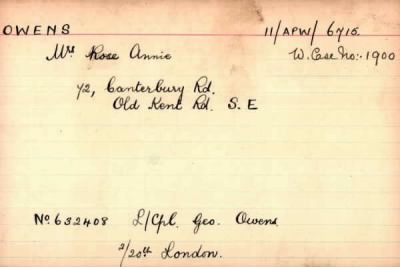 OWENS 11/APW/6715
Mrs Rose Annie W. Case No:- 1900
72, Canterbury Rd.
Old Kent Rd. S.E
No. 632408 L/Cpl. Geo. Owens
2/20th London.